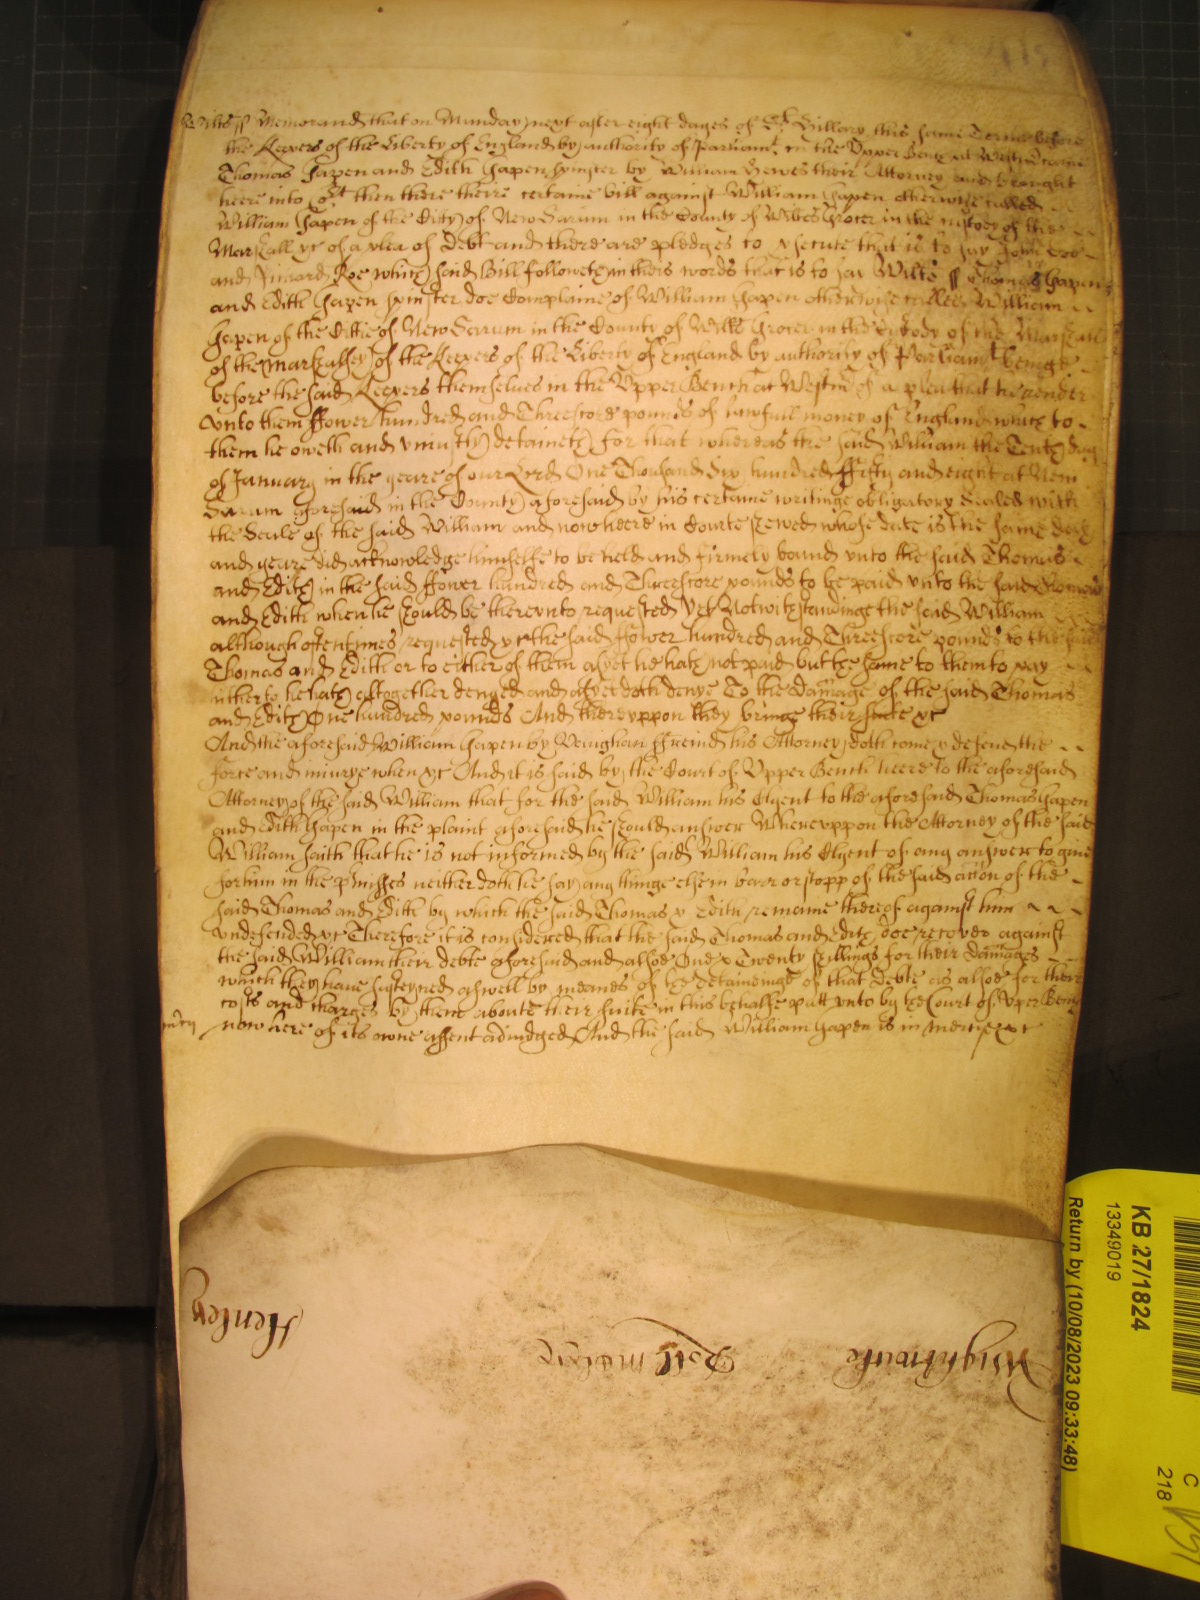 Wilts ss Memorand that on Munday next after eight dayes of St Hillary this same Terme before
the Keepers of the Liberty of England by authority of Parliamt in the Upper Bench at Westm Came
Thomas Hapen and Edith Hapen spinster by William Hewes their Attorney and brought
heere into Cort then there theire certaine bill against William Hapen otherwise called
William Hapen of the Citty of New Sarum in the County of Wilts Grocer in the custody of the
Marshall &c of a plea of Debt and there are pledges to prsecute that is to say John Doe
and Richard Roe which said Bill followeth in theis words that is to say Wilts ss Thomas Hapen
and Edith Hapen spinster doe Complaine of William Hapen otherwise called William
Hapen of the Cittie of New Sarum in the County of Wilts Grocer in the Custody of the Marshall
of the Marshalsey of the Keepers of the Liberty of England by authority of Parliamt beinge
before the said Keepers themselves in the Upper Bench at Westm of a plea that he render
unto them ffower hundred and Threescore pounds of lawfull money of England which to
them he oweth and uniustly detaineth for that whereas the said William the Tenth day
of January in the yeare of our Lord One Thousand Six hundred ffifty and eight at New
Sarum aforesaid in the County aforesaid by his certaine writinge obligatory Sealed with
the Seale of the said William and now heere in Courte shewed whose date is the same day
and yeare did acknowledge himselfe to be held and firmely bound unto the said Thomas
and Edith in the said ffower hundred and Threescore pounds to be paid unto the said Thomas
and Edith when he should be thereunto requested Yet Notwithstandinge the said William
although oftentimes requested &c the said ffower hundred and Threescore pounds to the said
Thomas and Edith or to either of them as yet he hath not paid but the same to them to pay
hitherto he hath altogether denyed and as yet doth denye To the damage of the said Thomas
and Edith One hundred pounds And thereuppon they bringe their suite &c
And the aforesaid William Hapen by Vaughan ffreind his Attorney doth come & defend the
force and iniurye when &c And it is said by the Court of Upper Bench heere to the aforesaid
Attorney of the said William that for the said William his Clyent to the aforesaid Thomas Hapen
and Edith Hapen in the plaint aforesaid he should answer Whereuppon the Attorney of the said
William saith that he is not informed by the said William his Clyent of any answer to give
for him in the prmisses neither doth he say any thinge else in barr or stopp of the said accon of the
said Thomas and Edith by which the said Thomas & Edith remaine thereof against him
undefended &c Therefore it is considered that the said Thomas and Edith doe recover against
the said William their debte aforesaid and alsoe One & Twenty shillings for their damages
which they have susteyned aswell by meanes of the detaineinge of that debte as alsoe for their
costs and charges by them aboute their suite in this behalfe putt unto by the Court of Upper Bench
mercy
now here of its owne assent adiudged And the said William Hapen is in mercie &c
Henley
Roll
KB 27/1824
13349019
Return by (10/08/2023 09:33:48)
C
218